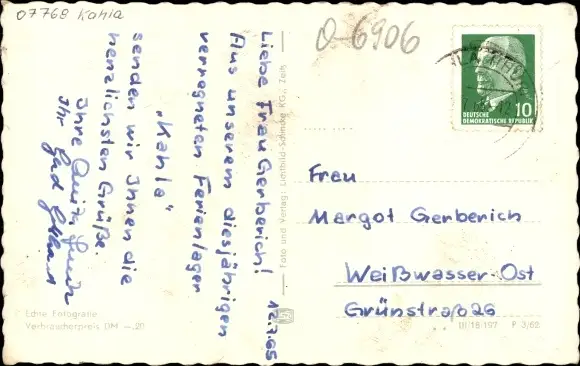 07768 Kahla
0-6906
Liebe Frau Gerberich! 12.7.65
Aus unserem diesjährigen
verregneten Ferienlager
"Kahla"
senden wir Ihnen die
herzlichsten Grüße.
Ihre
Ihr
Echte Fotografie
Verbraucherpreis DM -,20
Foto und Verlag: Lichtbild-Schincke KG., Zeitz
10
DEUTSCHE
DEMOKRATISCHE REPUBLIK
Frau
Margot Gerberich
Weißwasser-Ost
Grünstraße 26
III/18/197 P 3/62